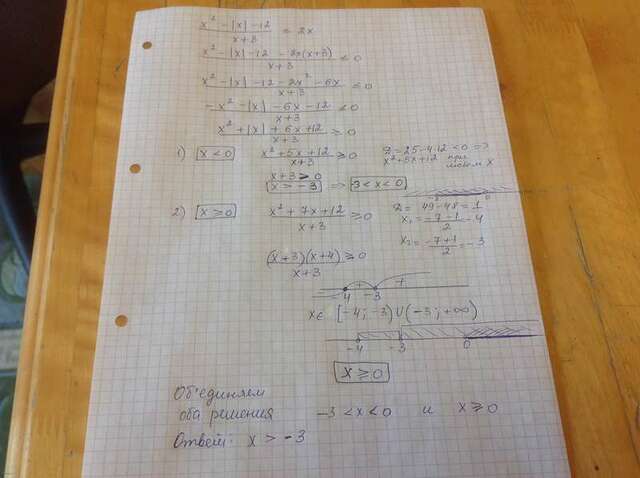 x² - |x| - 12 / x+3 ≤ 2x
x² - |x| - 12 - 2x(x+3) / x+3 ≤ 0
x² - |x| - 12 - 2x² - 6x / x+3 ≤ 0
-x² - |x| - 6x - 12 / x+3 ≤ 0
x² + |x| + 6x + 12 / x+3 ≥ 0
1) x < 0 x² + 5x + 12 / x+3 ≥ 0 D = 25 - 4·12 < 0 =>
x² + 5x + 12 при любом x
x + 3 > 0
x > -3 => -3 < x < 0
0
2) x ≥ 0 x² + 7x + 12 / x+3 ≥ 0 D = 49 - 48 = 1
x₁ = -7 - 1 / 2 = -4
x₂ = -7 + 1 / 2 = -3
(x+3)(x+4) / x+3 ≥ 0
- + +
-4 -3
x ∈ [-4; -3) ∪ (-3; +∞)
-4 -3 0
x ≥ 0
Об'единяем
оба решения -3 < x < 0 и x ≥ 0
Ответ: x > -3